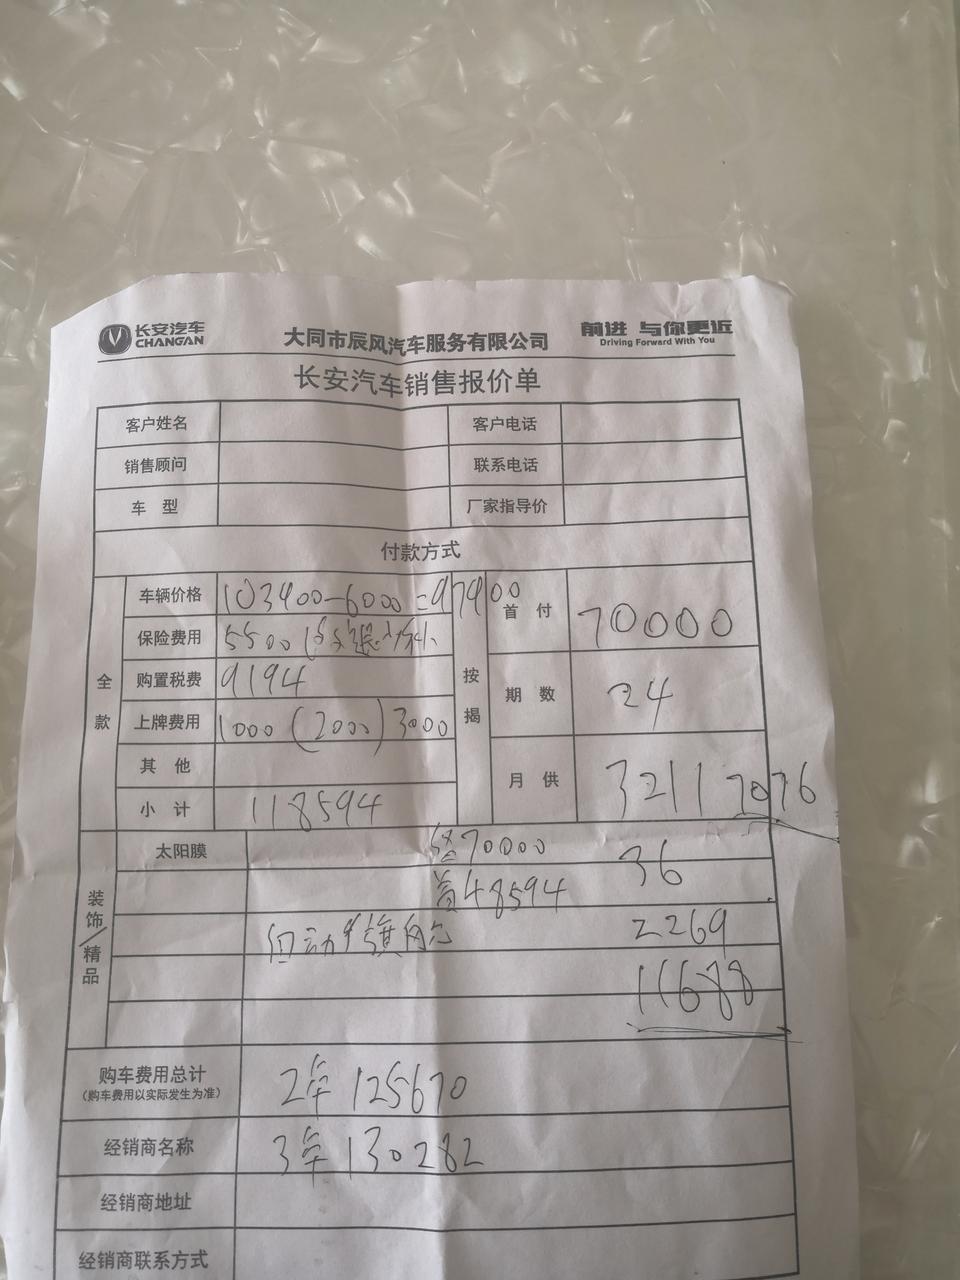 长安汽车
CHANGAN
大同市辰风汽车服务有限公司
前进 与你更近
Driving Forward With You
长安汽车销售报价单
客户姓名 客户电话
销售顾问 联系电话
车型 厂家指导价
付款方式
全款
车辆价格 103900-6000=97900
保险费用 5500
购置税费 9194
上牌费用 1000 (2000) 3000
其他
小计 118594
按揭
首付 70000
期数 24
月供 3211 7076
装饰/精品
太阳膜 70000 36
首48594
自动 旗 2269
11688
购车费用总计 2年 125670
(购车费用以实际发生为准)
经销商名称 3年 130282
经销商地址
经销商联系方式